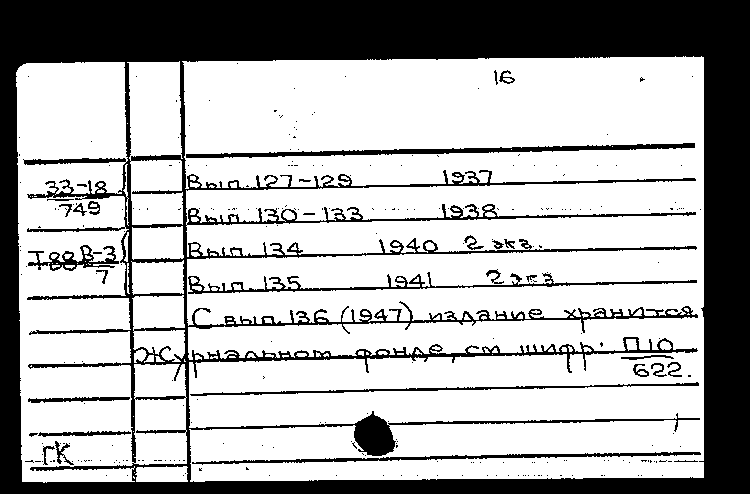 16
33-18 Вып. 127-129 1937
749 Вып. 130-133 1938
Вып. 134 1940 2 экз.
В-3
7 Вып. 135 1941 2 экз
С вып. 136 (1947) издание хранится
Журнальном фонде, см шифр: П10
622.
ГК